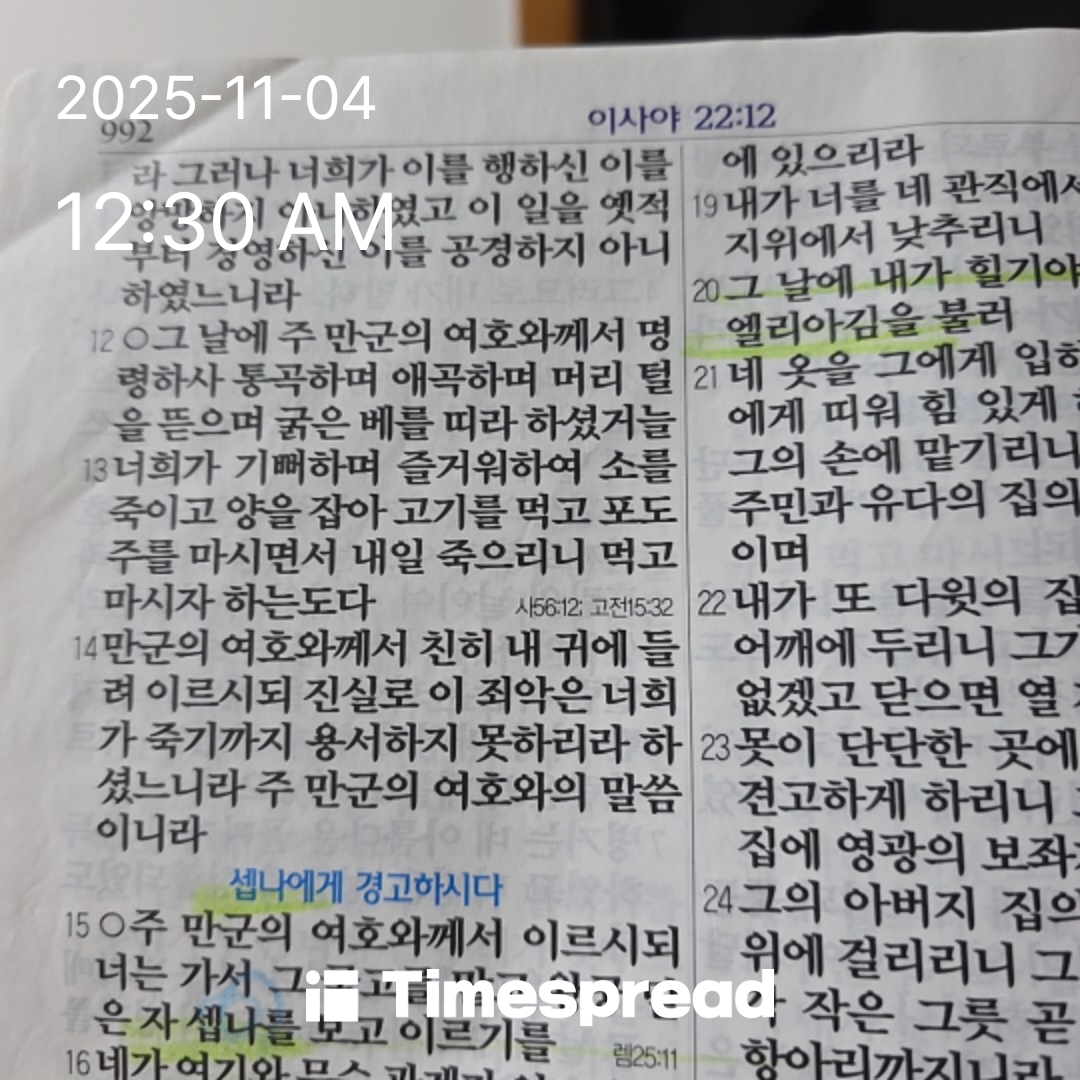 2025-11-04
992
이사야 22:12
12:30 AM
라 그러나 너희가 이를 행하신 이를
하였고 이 일을 옛적
부터 경영하신 이를 공경하지 아니
하였느니라
12 ○그 날에 주 만군의 여호와께서 명
령하사 통곡하며 애곡하며 머리 털
을 뜯으며 굵은 베를 띠라 하셨거늘
13 너희가 기뻐하며 즐거워하여 소를
죽이고 양을 잡아 고기를 먹고 포도
주를 마시면서 내일 죽으리니 먹고
마시자 하는도다 사56:12; 고전15:32
14 만군의 여호와께서 친히 내 귀에 들
려 이르시되 진실로 이 죄악은 너희
가 죽기까지 용서하지 못하리라 하
셨느니라 주 만군의 여호와의 말씀
이니라
셉나에게 경고하시다
15 ○주 만군의 여호와께서 이르시되
너는 가서 그
은 자 셉나를 보고 이르기를
렘25:11
16 네가 여기와 무슨
에 있으리라
19 내가 너를 네 관직에서
지위에서 낮추리니
20 그 날에 내가 힐기야
엘리아김을 불러
21 네 옷을 그에게 입히
에게 띠워 힘 있게
그의 손에 맡기리니
주민과 유다의 집의
이며
22 내가 또 다윗의 집
어깨에 두리니 그가
없겠고 닫으면 열
23 못이 단단한 곳에
견고하게 하리니
집에 영광의 보좌
24 그의 아버지 집의
위에 걸리리니 그
작은 그릇 곧
항아리까지니라
Timespread